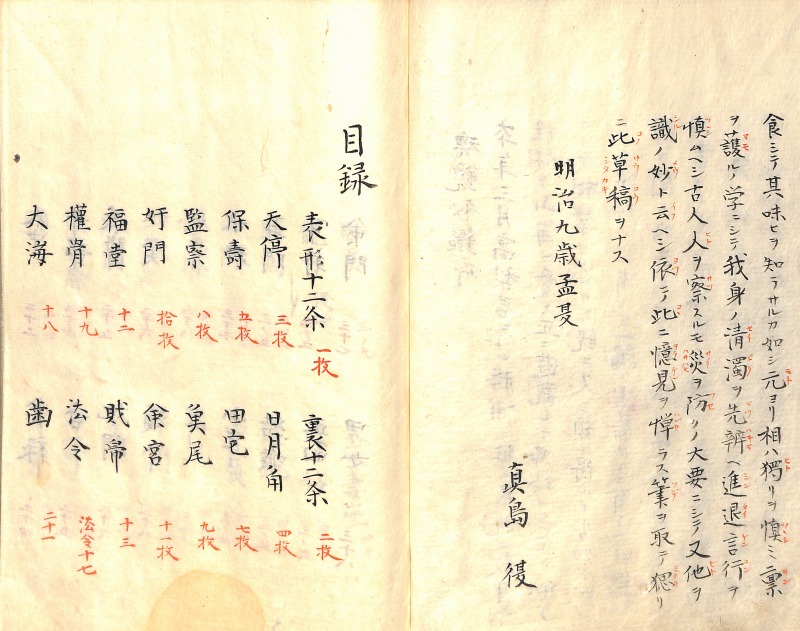 食シテ其味ヒヲ知ラサルカ如シ元ヨリ相ハ獨リヲ慎ミ禀
ヲ護ルノ学ニシテ我身ノ清濁ヲ先辨ヘ進退言行ヲ
慎ムヘシ古人人ヲ察スルモ災ヲ防クノ大要ニシテ又他ヲ
識ノ妙ト云ヘシ依テ此ニ憶見ヲ憚ラス筆ヲ取テ猥リ
ニ此草稿ヲナス
明治九歳孟夏
真島
目録
表形十二条 一枚
裏十二条 二枚
天停 三枚
日月角 四枚
保壽 五枚
田宅 七枚
監察 八枚
奐尾 九枚
奸門 拾枚
余宮 十一枚
福堂 十二
賎帝 十三
權骨 十九
法令 法令十七
大海 十八
歯 二十一